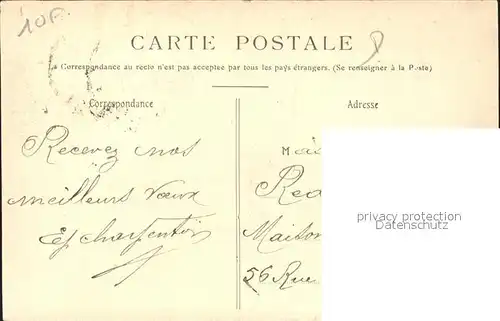 10F
CARTE POSTALE
La Correspondance au recto n'est pas acceptée par tous les pays étrangers. (Se renseigner à la Poste)
Correspondance
Adresse
Recevez nos
meilleurs vœux
Charpentier
Rea
Maison
56 Rue
privacy protection
Datenschutz